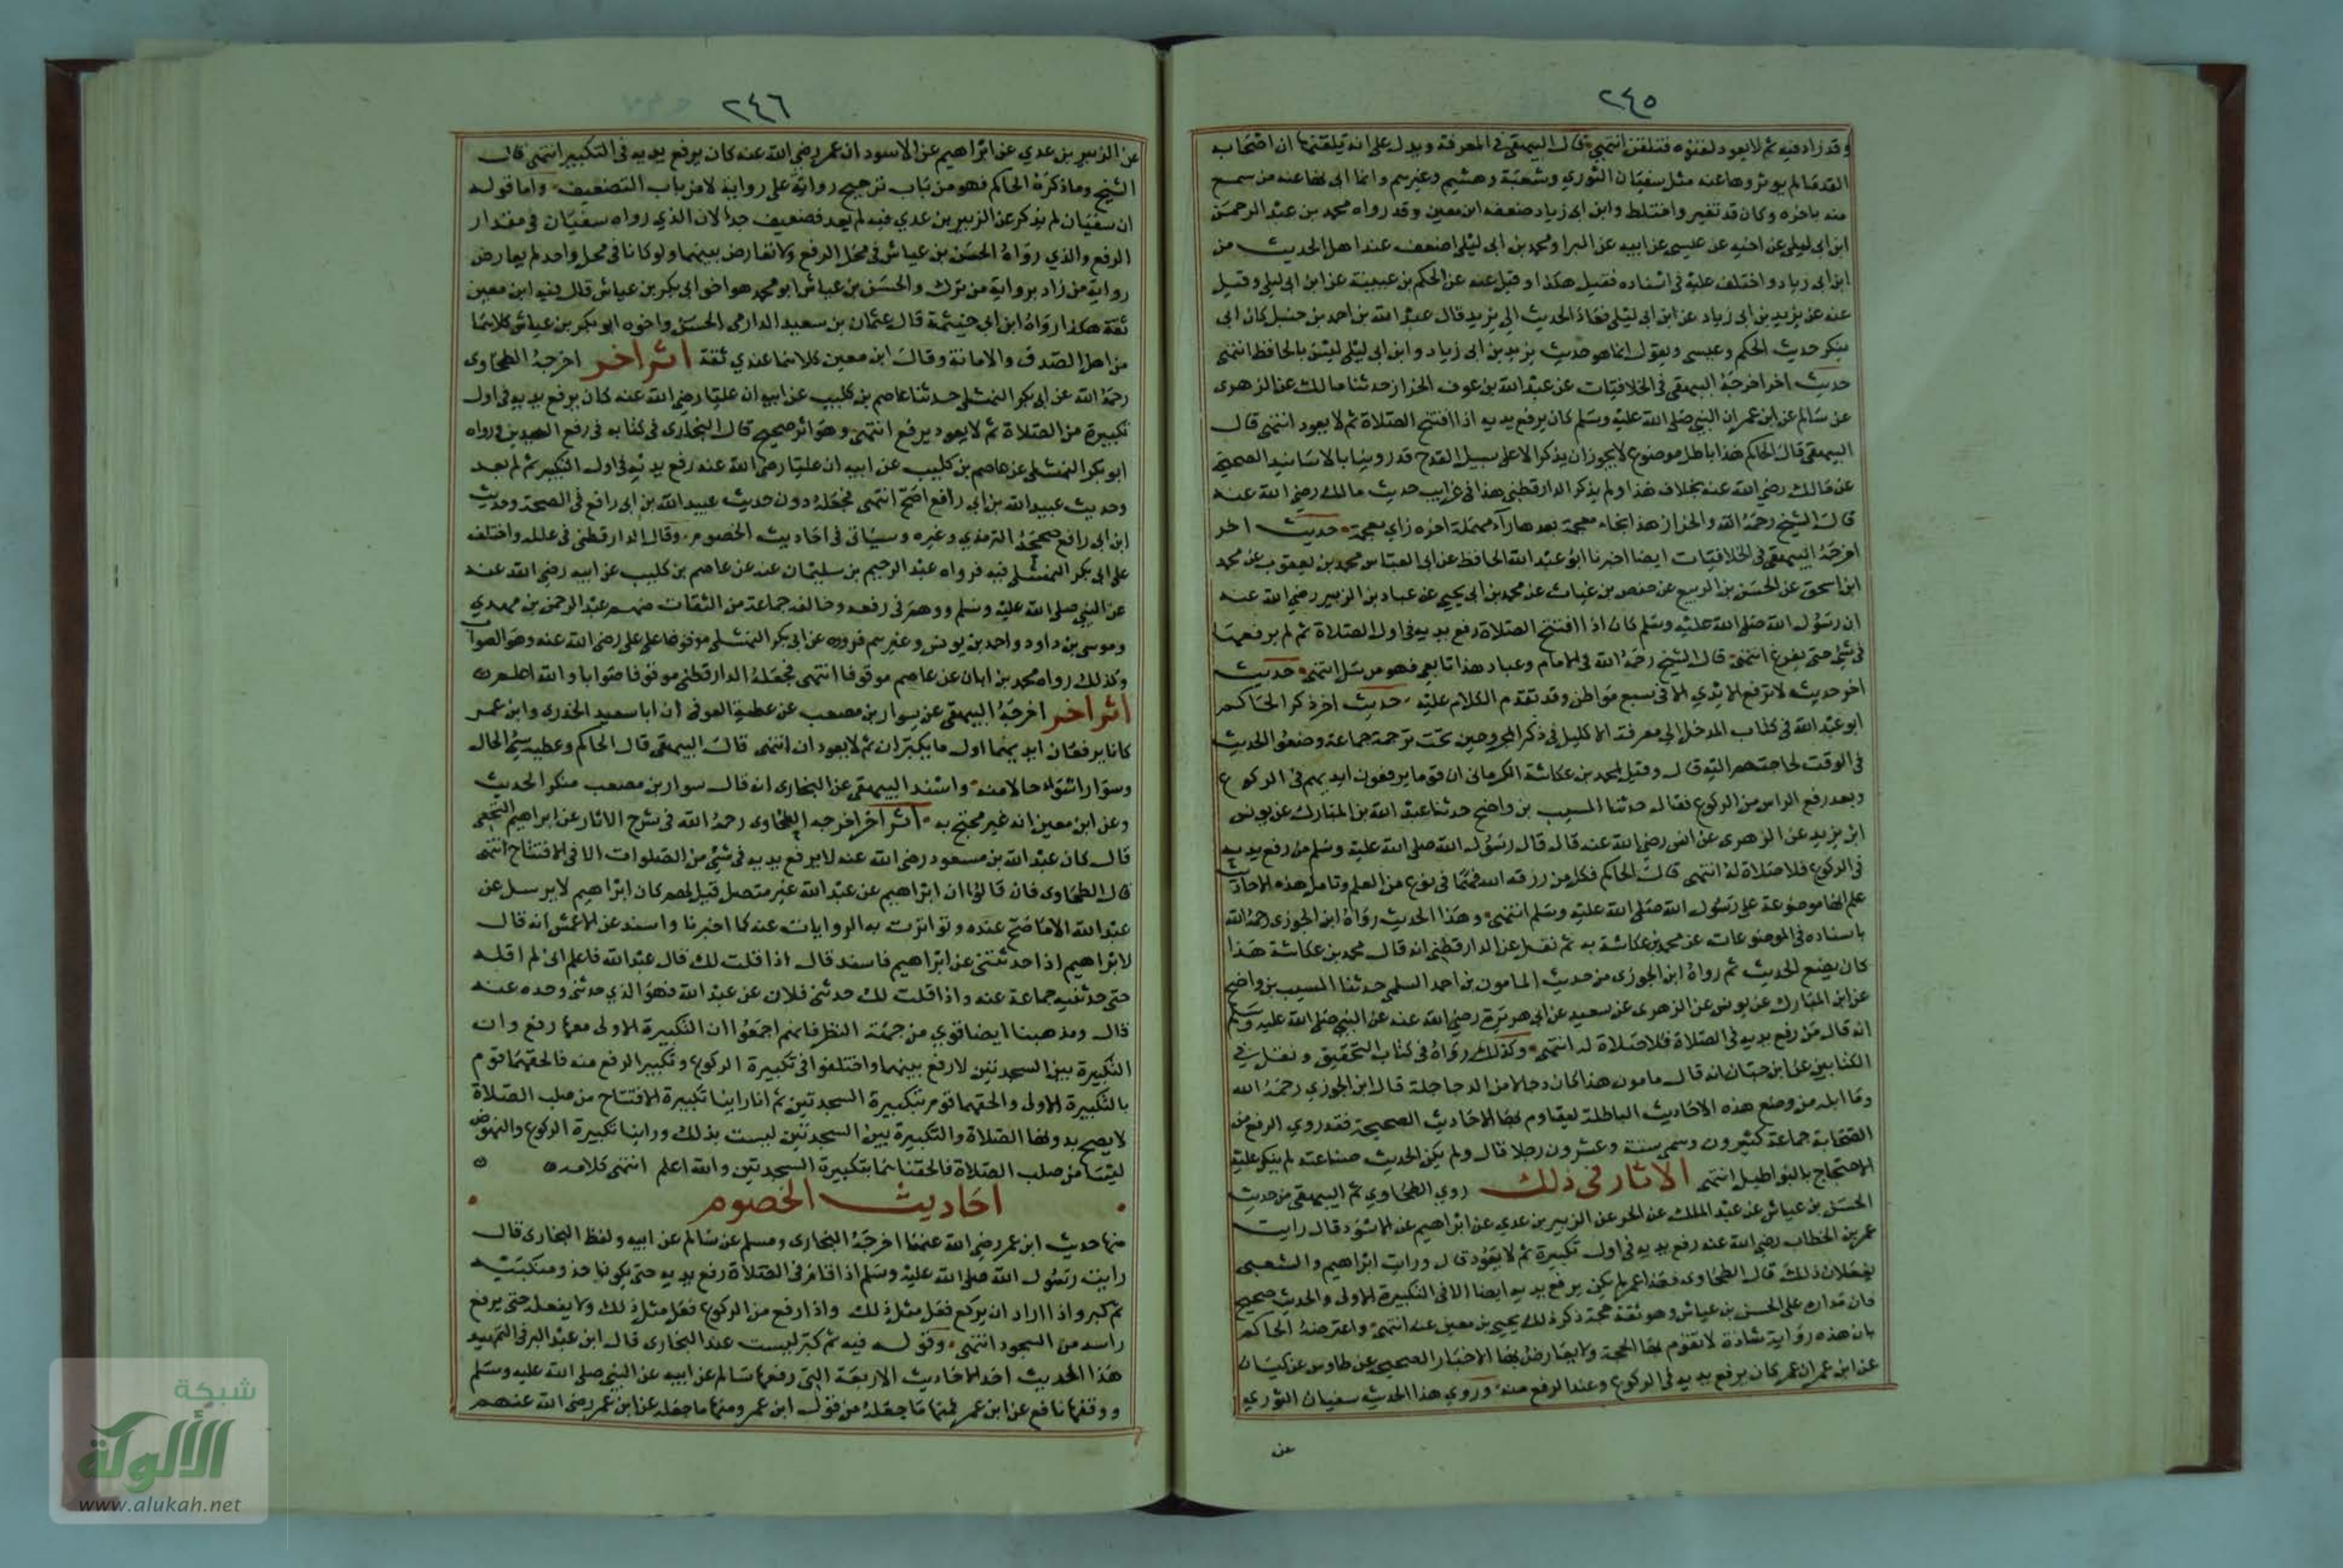 ٢٤٥
وقد زاد فيه ثم لا يعود لقنوه فتلقن انتهى قال البيهقي في المعرفة ويدل على انه تلقنها ان اصحابه
القدما لم يوثروها عنه مثل سفيان الثوري وشعبة وهشيم وغيرهم وانما اتى بها عنه من سمع
منه باخره وكان قد تغير واختلط وابن ابى زياد ضعفه ابن معين وقد رواه محمد بن عبد الرحمن
ابن ابى ليلى عن اخيه عن عيسى عن ابيه عن البرا ومحمد بن ابى ليلى اضعف عند اهل الحديث من
ابن ابى زياد واختلف عليه فى اسناده فقيل هكذا وقيل عنه عن الحكم بن عيينة عن ابن ابى ليلى وقيل
عنه عن يزيد بن ابى زياد عن ابن ابى ليلى فعاد الحديث الى يزيد قال عبد الله بن احمد بن حنبل كان ابى
ينكر حديث الحكم وعيسى ويقول انما هو حديث يزيد بن ابى زياد وابن ابى ليلى ليس بالحافظ انتهى
حديث اخر اخرجه البيهقى فى الخلافيات عن عبد الله بن عوف الخراز حدثنا مالك عن الزهرى
عن سالم عن ابن عمر ان النبى صلى الله عليه وسلم كان يرفع يديه اذا افتتح الصلاة ثم لا يعود انتهى قال
البيهقى قال الحاكم هذا باطل موضوع لا يجوز ان يذكر الا على سبيل القدح فقد روينا بالاسانيد الصحيحة
عن مالك رضى الله عنه بخلاف هذا ولم يذكر الدارقطنى هذا فى غرايب حديث مالك رضى الله عنه
قال الشيخ رحمه الله والخراز هذا بخاء معجمة بعدها رآء مهملة اخره زاى معجمة حديث اخر
اخرجه البيهقى فى الخلافيات ايضا اخبرنا ابو عبد الله الحافظ عن ابى العباس محمد بن يعقوب عن محمد
ابن اسحق عن الحسن بن الربيع عن حفص بن غياث عن محمد بن ابى يحيى عن عباد بن الزبير رضى الله عنه
ان رسول الله صلى الله عليه وسلم كان اذا افتتح الصلاة رفع يديه فى اول الصلاة ثم لم يرفعهما
فى شئ حتى يفرغ انتهى قال الشيخ رحمه الله فى الامام وعباد هذا تابعى فهو مرسل انتهى حديث
اخر حديث لا ترفع الايدي الا فى سبع مواطن وقد تقدم الكلام عليه حديث اخر ذكر الحاكم
ابو عبد الله فى كتاب المدخل الى معرفة الاكليل فى ذكر المجروحين تحت ترجمة جماعة وضعوا الحديث
فى الوقت لحاجتهم اليه قال وقيل لمحمد بن عكاشة الكرمانى ان قوما يرفعون ايديهم فى الركوع
وبعد رفع الراس من الركوع فقال حدثنا المسيب بن واضح حدثنا عبد الله بن المبارك عن يونس
ابن يزيد عن الزهرى عن انس رضى الله عنه قال قال رسول الله صلى الله عليه وسلم من رفع يديه
فى الركوع فلا صلاة له انتهى قال الحاكم فكل من رزقه الله فهما فى نوع من العلم وتامل هذه الاحاديث
علم انها موضوعة على رسول الله صلى الله عليه وسلم انتهى وهذا الحديث رواه ابن الجوزى رحمه الله
باسناده فى الموضوعات عن محمد بن عكاشة به ثم نقل عن الدارقطنى انه قال محمد بن عكاشة هذا
كان يضع الحديث ثم رواه ابن الجوزى من حديث المامون بن احمد السلمى حدثنا المسيب بن واضح
عن ابن المبارك عن يونس عن الزهرى عن سعيد عن ابى هريرة رضى الله عنه عن النبى صلى الله عليه وسلم
انه قال من رفع يديه فى الصلاة فلا صلاة له انتهى وكذلك رواه فى كتاب التحقيق ونقل فى
الكتابين عن ابن حبان انه قال مامون هذا كان دجالا من الدجاجلة قال ابن الجوزي رحمه الله
وما ابله من وضع هذه الاحاديث الباطلة ليقاوم بها الاحاديث الصحيحة فقد روي الرفع من
الصحابة جماعة كثيرون وسمى ستة وعشرون رجلا قال ولم يكن الحديث صناعته لم ينكر عليه
الاحتجاج بالبواطيل انتهى الاثار فى ذلك روى الطحاوي ثم البيهقى من حديث
الحسن بن عياش عن عبد الملك عن الحر عن الزبير بن عدي عن ابراهيم عن الاسود قال رايت
عمر بن الخطاب رضى الله عنه رفع يديه فى اول تكبيرة ثم لا يعود قال ورايت ابراهيم والشعبى
يفعلان ذلك قال الطحاوى فهذا عمر لم يكن يرفع يديه ايضا الا فى التكبيرة الاولى والحديث صحيح
فان مداره على الحسن بن عياش وهو ثقة حجة ذكر ذلك يحيى بن معين عنه انتهى واعترضه الحاكم
بان هذه رواية شاذة لا تقوم بها الحجة ولا يعارض بها الاخبار الصحيحة عن طاوس عن كيسان
عن ابن عمر ان عمر كان يرفع يديه فى الركوع وعند الرفع منه وروي هذا الحديث سفيان الثوري
عن
٢٤٦
عن الزبير بن عدي عن ابراهيم عن الاسود ان عمر رضى الله عنه كان يرفع يديه فى التكبير انتهى قال
الشيخ وما ذكره الحاكم فهو من باب ترجيح رواية على رواية لا من باب التضعيف واما قوله
ان سفيان لم يذكر عن الزبير بن عدي فيه لم يعد فضعيف جدا لان الذي رواه سفيان فى مقدار
الرفع والذي رواه الحسن بن عياش فى محل الرفع ولا تعارض بينهما ولو كانا فى محل واحد لم يعارض
رواية من زاد برواية من ترك والحسن بن عياش ابو محمد هو اخو ابى بكر بن عياش قال فيه ابن معين
ثقة هكذا رواه ابن ابى خيثمة قال عثمان بن سعيد الدارمى الحسن واخوه ابو بكر بن عياش كلاهما
من اهل الصدق والامانة وقال ابن معين كلاهما عندي ثقة اثر اخر اخرجه الطحاوى
رحمه الله عن ابى بكر النهشلى حدثنا عاصم بن كليب عن ابيه ان عليا رضى الله عنه كان يرفع يديه فى اول
تكبيرة من الصلاة ثم لا يعود يرفع انتهى وهو اثر صحيح قال البخارى فى كتابه فى رفع اليدين ورواه
ابو بكر النهشلى عن عاصم بن كليب عن ابيه ان عليا رضى الله عنه رفع يديه فى اول التكبير ثم لم يعد
وحديث عبيد الله بن ابى رافع اصح انتهى فجعله دون حديث عبيد الله بن ابى رافع فى الصحة وحديث
ابن ابى رافع صححه الترمذي وغيره وسيأتى فى احاديث الخصوم وقال الدارقطنى فى علله واختلف
على ابى بكر النهشلى فيه فرواه عبد الرحيم بن سليمان عنه عن عاصم بن كليب عن ابيه رضى الله عنه
عن النبى صلى الله عليه وسلم ووهم فى رفعه وخالفه جماعة من الثقات منهم عبد الرحمن بن مهدي
وموسى بن داود واحمد بن يونس وغيرهم فرووه عن ابى بكر النهشلى موقوفا على على رضى الله عنه وهو الصواب
وكذلك رواه محمد بن ابان عن عاصم موقوفا انتهى فجعله الدارقطنى موقوفا صوابا والله اعلم
اثر اخر اخرجه البيهقى عن سوار بن مصعب عن عطية العوفى ان ابا سعيد الخدرى وابن عمر
كانا يرفعان ايديهما اول ما يكبران ثم لا يعودان انتهى قال البيهقى قال الحاكم وعطية سئ الحال
وسوار اسوأ حالا منه واسند البيهقى عن البخارى انه قال سوار بن مصعب منكر الحديث
وعن ابن معين انه غير محتج به اثر آخر اخرجه الطحاوى رحمه الله فى شرح الاثار عن ابراهيم النخعى
قال كان عبد الله بن مسعود رضى الله عنه لا يرفع يديه فى شئ من الصلوات الا فى الافتتاح انتهى
قال الطحاوى فان قالوا ان ابراهيم عن عبد الله غير متصل قيل لهم كان ابراهيم لا يرسل عن
عبد الله الا ما صح عنده وتواترت به الروايات عنه كما اخبرنا واسند عن الاعمش انه قال
لابراهيم اذا حدثتنى عن ابراهيم فاسند قال اذا قلت لك قال عبد الله فاعلم انى لم اقله
حتى حدثنيه جماعة عنه واذا قلت لك حدثنى فلان عن عبد الله فهو الذي حدثنى وحده عنه
قال ومذهبنا ايضا قوي من جهة النظر فانهم اجمعوا ان التكبيرة الاولى معها رفع وان
التكبيرة بين السجدتين لا رفع بينهما واختلفوا فى تكبيرة الركوع وتكبير الرفع منه فالحقهما قوم
بالتكبيرة الاولى والحقهما قوم بتكبيرة السجدتين ثم انا راينا تكبيرة الافتتاح من صلب الصلاة
لا يصح بدونها الصلاة والتكبيرة بين السجدتين ليست بذلك وراينا تكبيرة الركوع والنهوض
ليستا من صلب الصلاة فالحقناهما بتكبيرة السجدتين والله اعلم انتهى كلامه
احاديث الخصوم
منها حديث ابن عمر رضى الله عنهما اخرجه البخارى ومسلم عن سالم عن ابيه ولفظ البخارى قال
رايت رسول الله صلى الله عليه وسلم اذا قام فى الصلاة رفع يديه حتى يكونا حذو منكبيه
ثم كبر واذا اراد ان يركع فعل مثل ذلك واذا رفع من الركوع فعل مثل ذلك ولا يفعله حتى يرفع
راسه من السجود انتهى وقوله فيه ثم كبر ليست عند البخارى قال ابن عبد البر فى التمهيد
هذا الحديث احد الاحاديث الاربعة التى رفعها سالم عن ابيه عن النبى صلى الله عليه وسلم
ووقفها نافع عن ابن عمر فمنها ما جعله من قول ابن عمر ومنها ما جعله عن ابن عمر رضى الله عنهم
شبكة
الألوكة
www.alukah.net